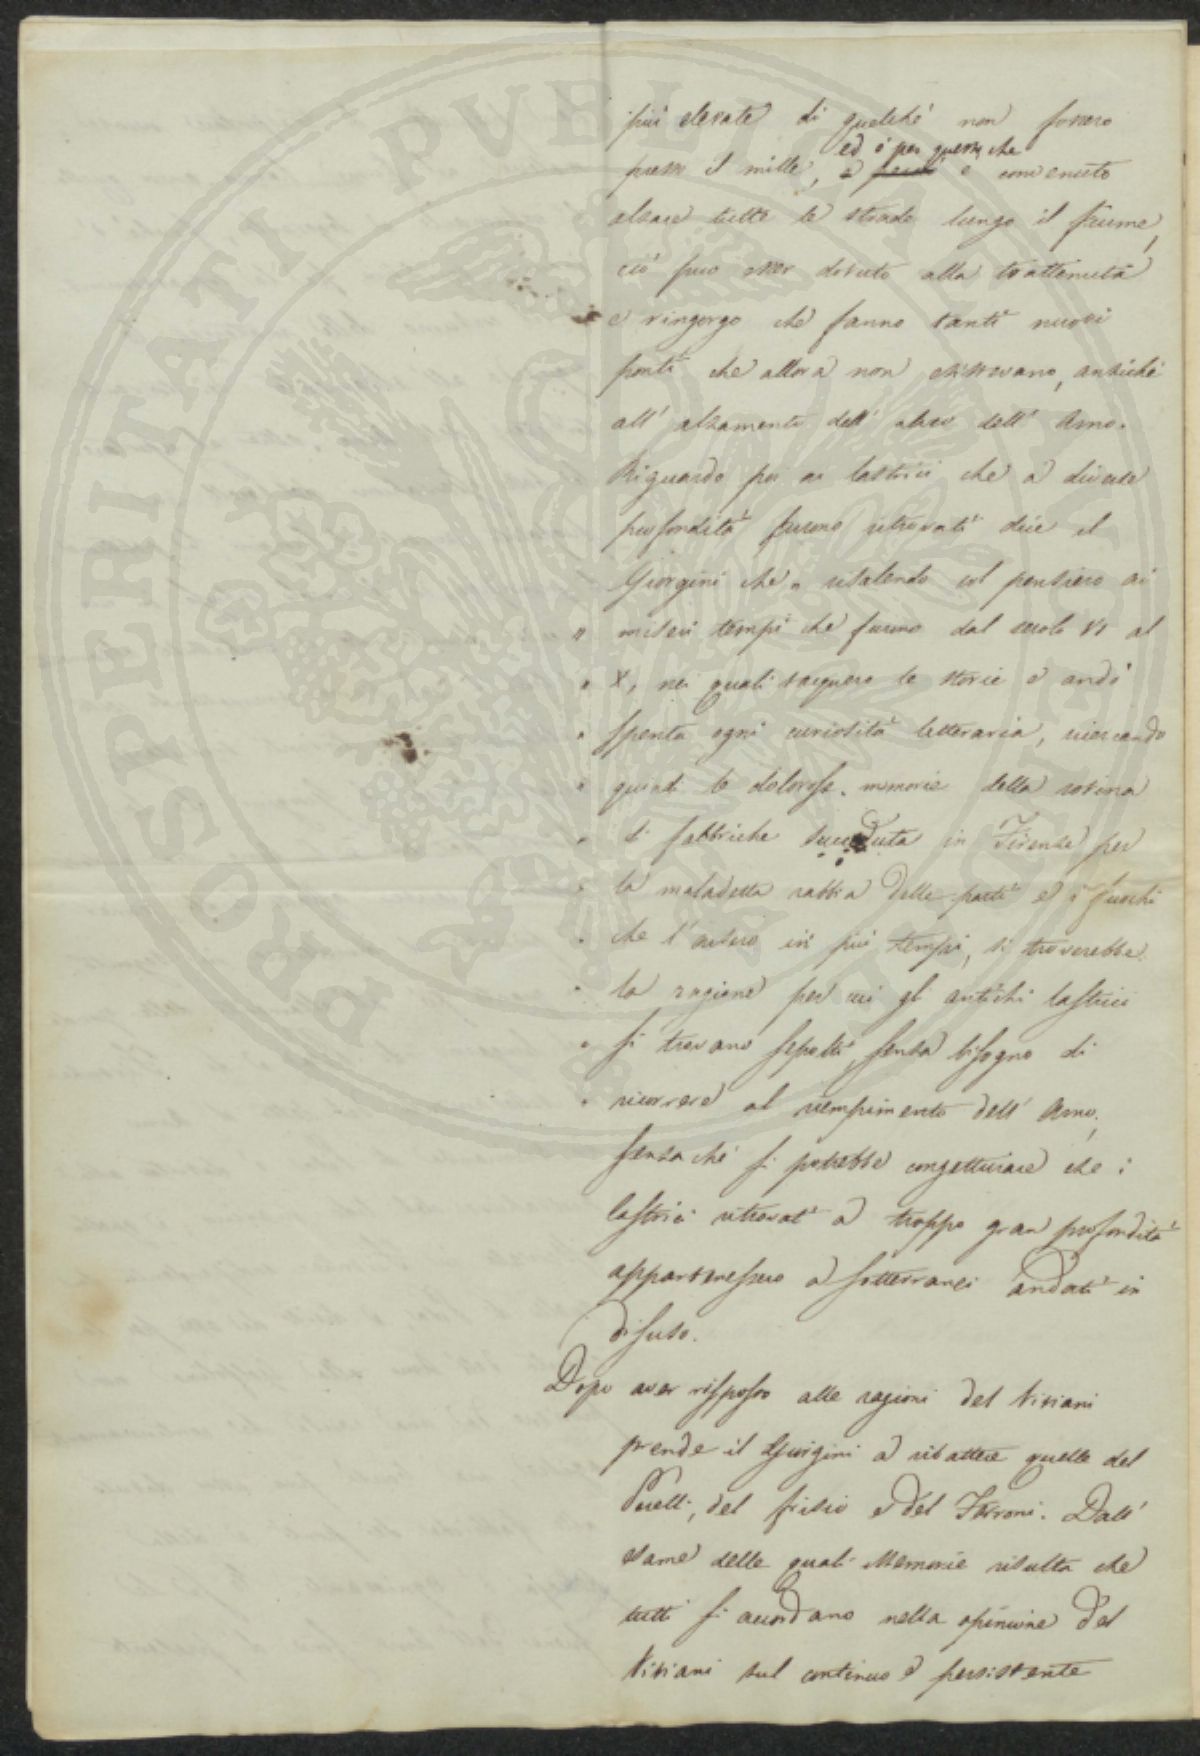 più elevate di quelchè non fossero
ed è per questo che
presso il mille, e però è convenuto
alzare tutte le strade lungo il fiume,
ciò può esser dovuto alla trattenuta
e ringorgo che fanno tanti nuovi
ponti che allora non esistevano, anzichè
all' alzamento dell' alveo dell' Arno.
Riguardo poi ai lastrici che a diverse
profondità furono ritrovati dice il
Giorgini che " risalendo col pensiero ai
" miseri tempi che furono dal secolo VI al
" X, nei quali tacquero le storie e andò
" spenta ogni curiosità letteraria, ricercando
" quindi le dolorose memorie della rovina
" di fabbriche succeduta in Firenze per
" la maladetta rabbia delle parti e i fuochi
" che l'arsero in più tempi, si troverebbe
" la ragione per cui gli antichi lastrici
" si trovano sepolti, senza bisogno di
" ricorrere al riempimento dell' Arno;
senza che si potrebbe congetturare che i
lastrici ritrovati a troppo gran profondità
appartenessero a sotterranei andati in
disuso.
Dopo aver risposto alle ragioni del Viviani
prende il Giorgini a ribattere quelle del
Perelli, del Frisio e del Ferroni. Dall'
esame delle quali Memorie risulta che
tutti si accordano nella opinione del
Viviani sul continuo e persistente
PROSPERITATI PVBLICAE